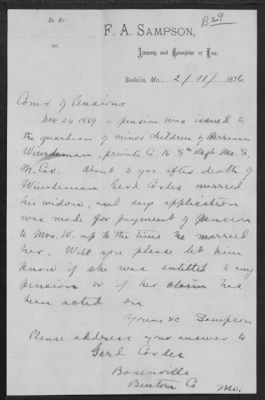 In Re
B 29
F. A. SAMPSON,
vs.
Attorney and Counselor at Law.
Sedalia, Mo. 2/11/ 1876
Comr of Pensions
Dec 24 1869 a pension was issued to
the guardian of minor children of Herrman
Wierdeman, private Co. K. 8th Regt Mo. S.
M. Cav. About 3 yrs after death of
Wierdeman Gerd Cordes married
his widow, and says application
was made for payment of pension
to Mrs. W. up to the time he married
her. Will you please let him
know if she was entitled to any
pension or if her claim has
been acted on
Yours &c Sampson
Please address your answer to
Gerd Cordes
Benton Co Mo.